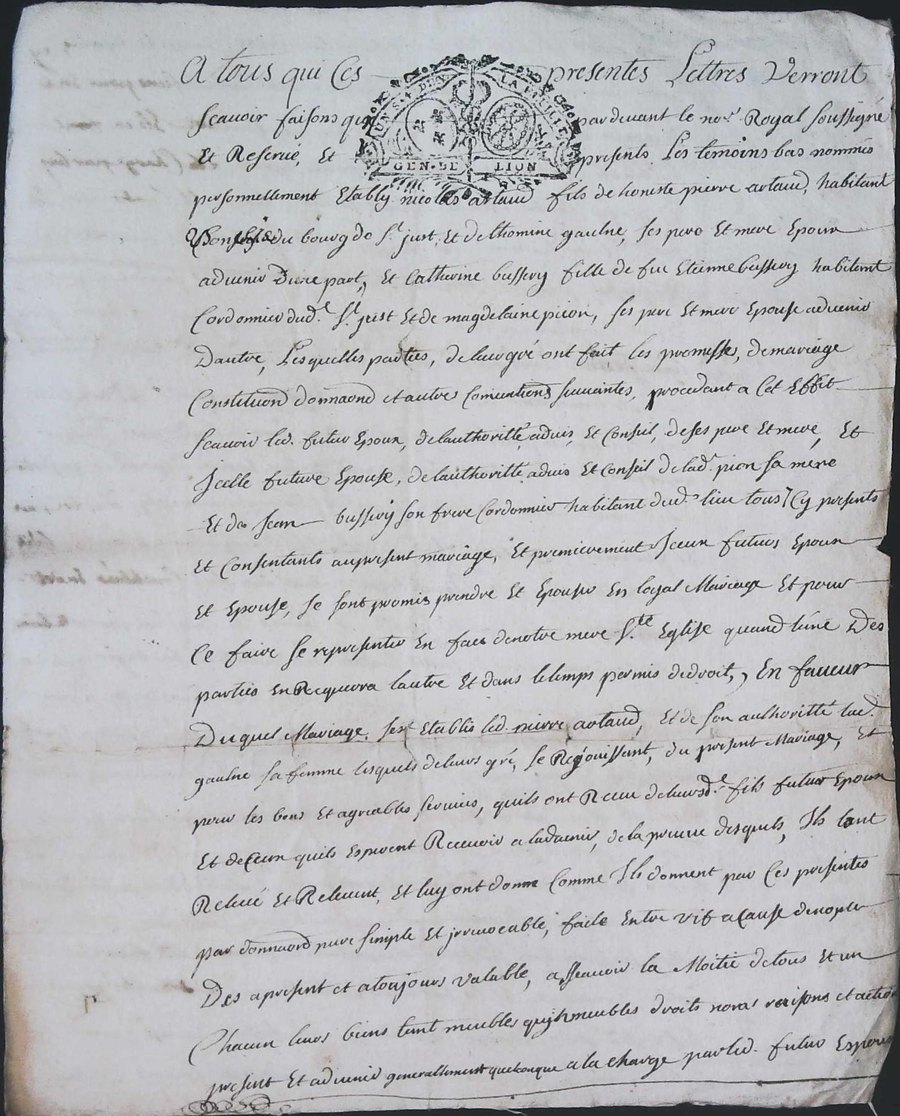 A tous qui Ces presentes Lettres Verront
Scavoir faisons que pardevant le nore. Royal Soussigné
UN S. 4 DEN LA FEUILLE
GEN. DE LION
Et Reservé, Et presents, Les temoins bas nommés
personnellement Etably nicolas artaud fils de honeste pierre artaud, habitant
du bourg de St. just, Et de thomine gaulne, ses pere et mere Epoux
advenir Dune part, Et Catherine bussery fille de feu Etienne bussery habitant
Cordonnier dud. St. just Et de magdelaine pion, ses pere et mere Epouse advenir
Dautre, Lesquelles parties, de leur gré ont fait les promesse, de mariage
Constitution donnaond et autres Conventions suivantes, procedant a Cet Effet
Scavoir led. futur Epoux, de lauthoritté, advis Et Conseil, de ses pere Et mere, Et
Icelle future Epouse, de lauthoritté advis Et Conseil de lad. pion sa mere
Et de Jean bussery son frere Cordonnier habitant dud. lieu tous Cy presents
Et Consentants au present mariage, Et premierement Iceux futurs Epoux
Et Epouse, se sont promis prendre Et Epouser En loyal Mariage Et pour
Ce faire se representer En face de notre mere Ste. Eglise quand l'une Des
parties En Requerra lautre Et dans le temps permis de droit, En faveur
Duquel Mariage, sest Etablis led. pierre artaud, Et de son authoritté lad.
gaulne sa femme lesquels de leurs gré, se Rejouissant, du present Mariage, Et
pour les bons Et agreables services, quils ont Receu de leurd. fils futur Epoux
Et de Ceux quils Esperent Recevoir a ladvenir, de la preuve desquels, Ils lont
Relevé Et Relevent, Et luy ont donné Comme Ils donnent par Ces presentes
par donnaond pure simple Et jrrevocable, faite Entre vif a Cause de nopces
Des a present et a toujours valable, a sscavoir la Moitié de tous Et un
Chacun leurs biens tant meubles qujmmeubles droits noms raisons et action
present Et advenir generallement quelconque a la Charge par led. futur Espoux